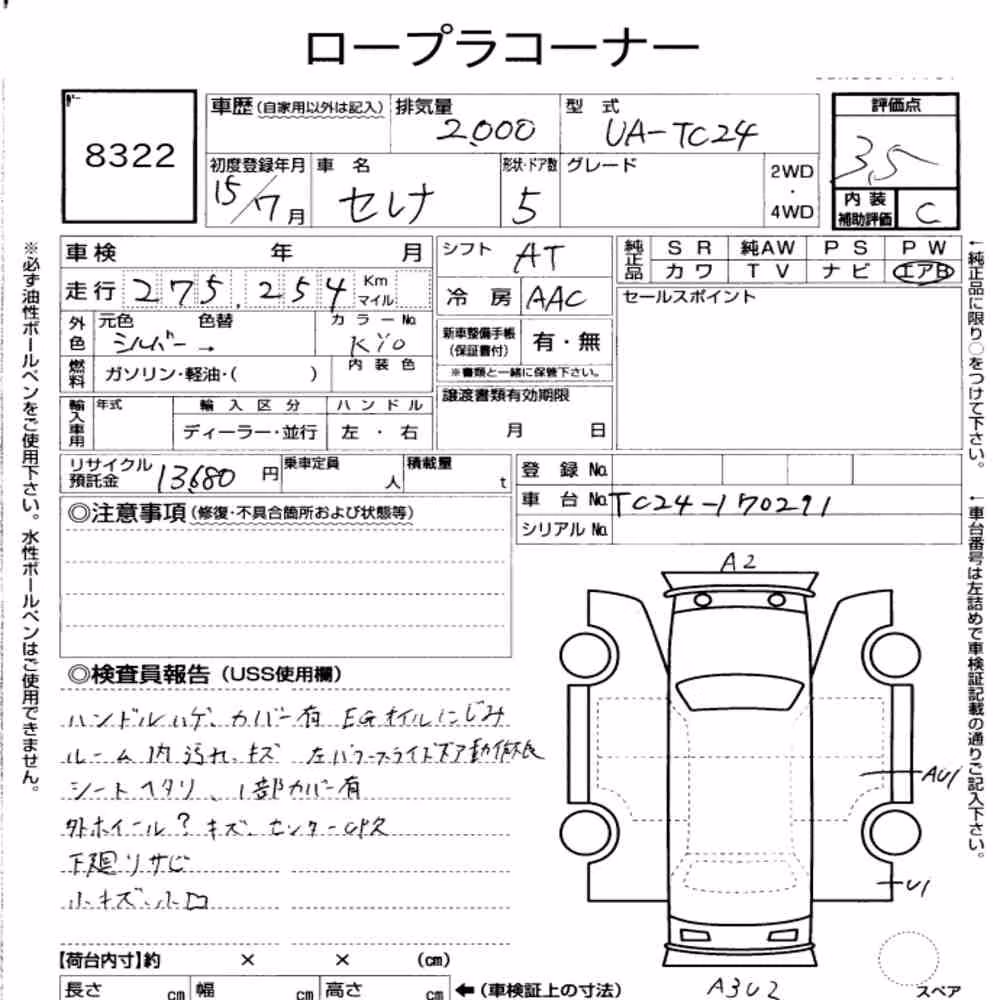 ロープラコーナー
8322
車歴 (自家用以外は記入) 排気量 型 式 評価点
2,000 UA-TC24 3.5
初度登録年月 車 名 形状・ドア数 グレード 2WD ・ 4WD
15/7月 セレナ 5
内 装 補助評価 C
車検 年 月
走行 275,254 Km マイル
外色 元色 色替 カラーNo.
シルバー → KY0
内装色
燃料 ガソリン・軽油・( )
輸入車用 年式 輸入区分 ハンドル
ディーラー・並行 左 ・ 右
シフト AT
冷 房 AAC
新車整備手帳 (保証書付) 有・無
※書類と一緒に保管下さい。
譲渡書類有効期限
月 日
純正品 SR 純AW PS PW
カワ TV ナビ エアB
セールスポイント
リサイクル預託金 13,680 円 乗車定員 人 積載量 t
登 録 No.
車 台 No. TC24-170291
シリアル No.
◎注意事項 (修復・不具合箇所および状態等)
◎検査員報告 (USS使用欄)
ハンドルハゲ、カバー有 EGオイルにじみ
ルーム内汚れ、キズ 左パワースライドドア動作不良
シートヘタリ、1部カバー有
外ホイール? キズ、センターCP欠
下廻リサビ
小キズ、小凹
A2
AU1
U1
A3U2
スペア
【荷台内寸】約 × × (cm)
長さ cm 幅 cm 高さ cm ←(車検証上の寸法)
※必ず油性ボールペンをご使用下さい。水性ボールペンはご使用できません。
←純正品に限り○をつけて下さい。
←車台番号は左詰めで車検証記載の通りご記入下さい。